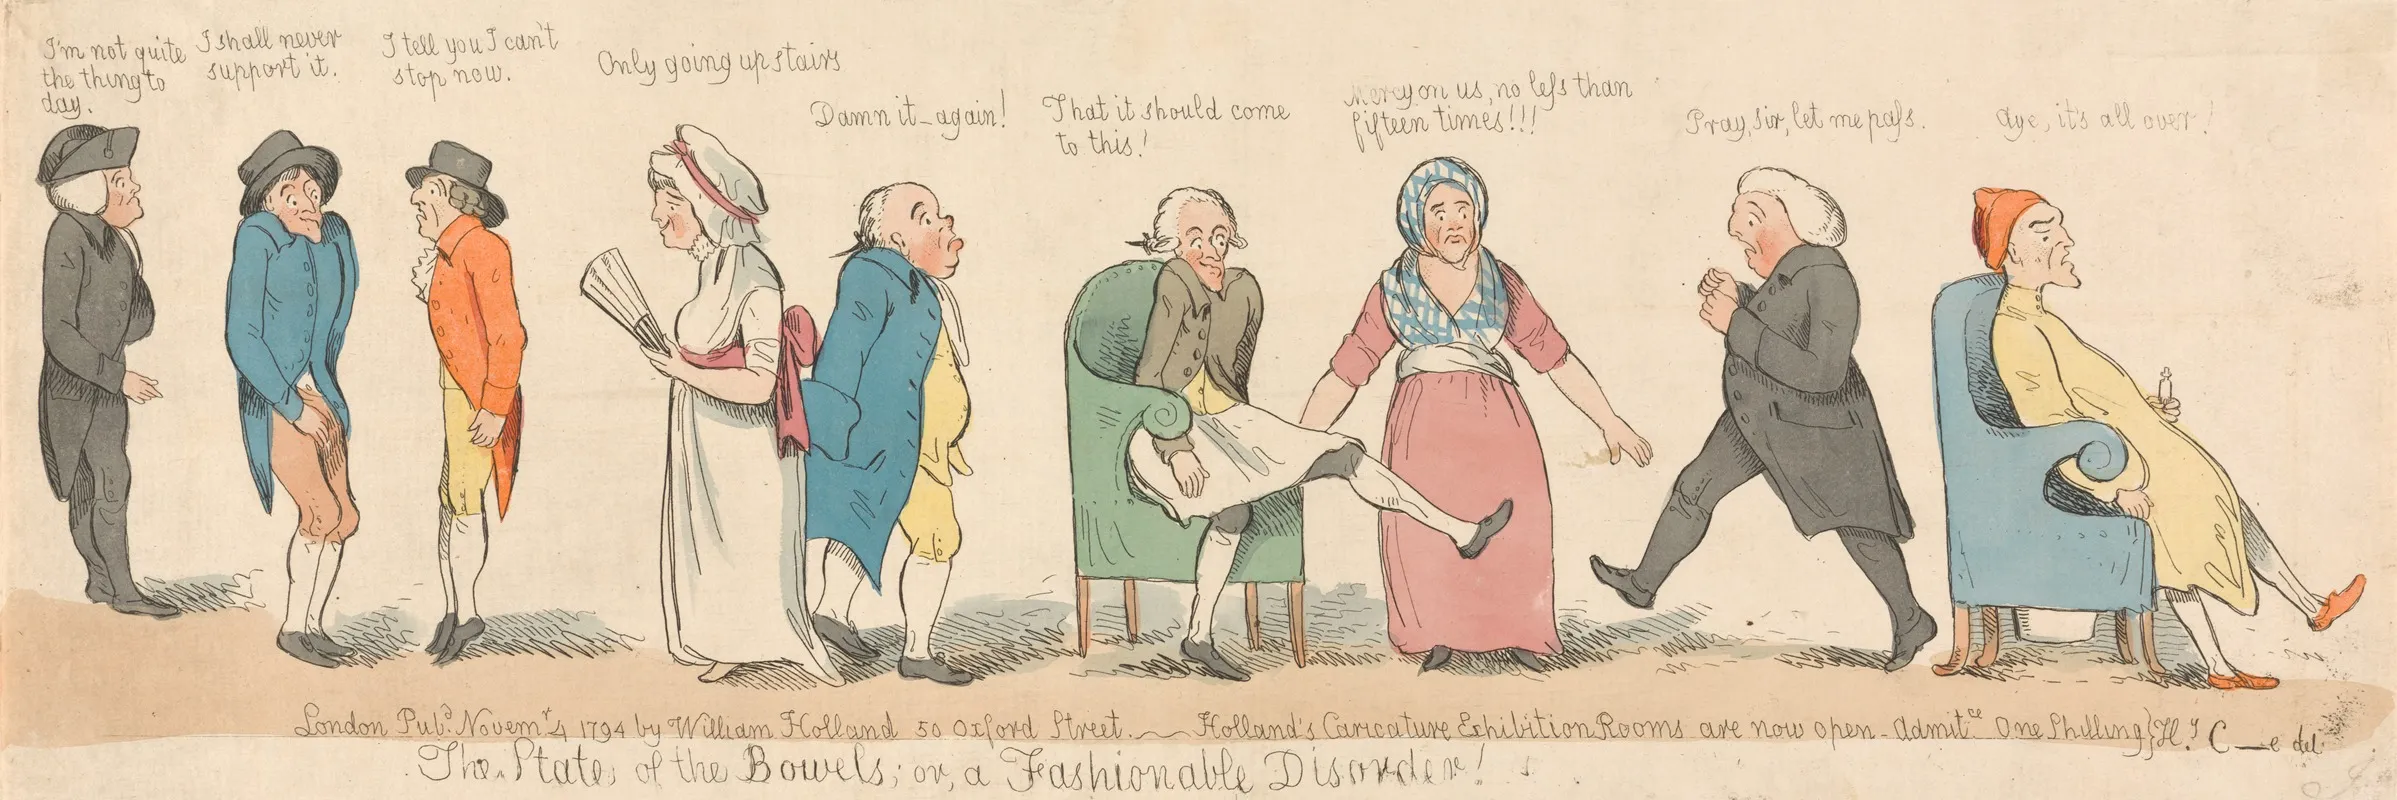 I'm not quite
the thing to
day.
I shall never
support it.
I tell you I can't
stop now.
Only going up stairs
Damn it–again!
That it should come
to this!
Mercy on us, no leſs than
fifteen times!!!
Pray, sir, let me paſs.
Aye, it's all over!
London Pubd. Novemr 4 1794 by William Holland 50 Oxford Street. — Holland's Caricature Exhibition Rooms are now open - Admitce One Shilling} Hy. C—e del.
The State of the Bowels; or, a Fashionable Disorder!